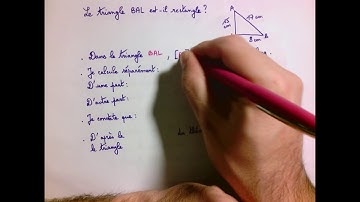 Le triangle BAL est-il rectangle ?
A
15 cm
17 cm
8 cm
. Dans le triangle BAL, [
. Je calcule séparément :
D'une part :
D'autre part :
. Je constate que :
. D'après le
le triangle